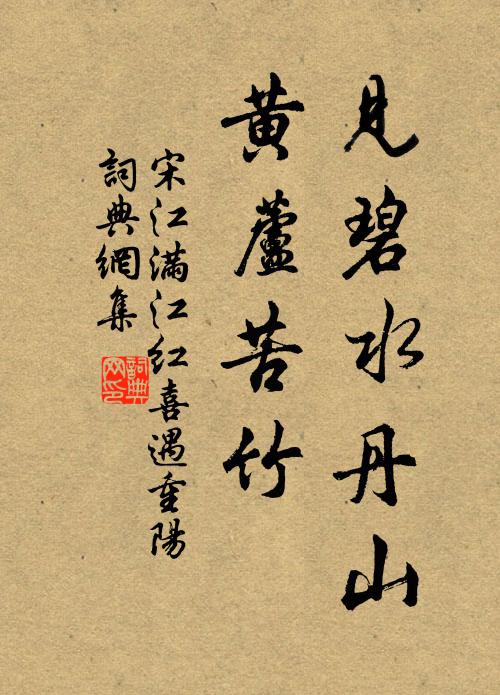 見碧水丹山
黃蘆苦竹
宋江滿江红喜遇重陽
詞典網集
詞典网印